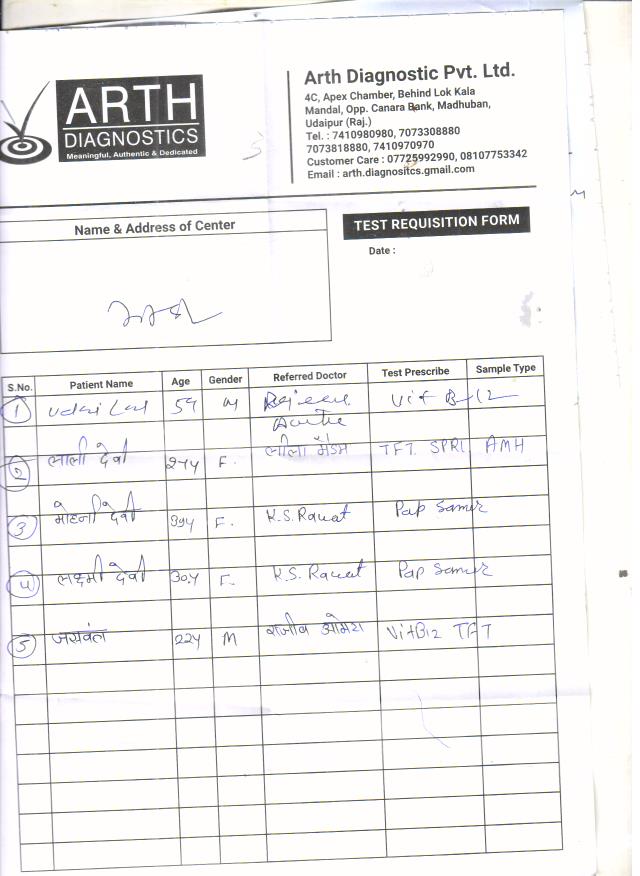 ARTH
DIAGNOSTICS
Meaningful, Authentic & Dedicated
Arth Diagnostic Pvt. Ltd.
4C, Apex Chamber, Behind Lok Kala
Mandal, Opp. Canara Bank, Madhuban,
Udaipur (Raj.)
Tel. : 7410980980, 7073308880
7073818880, 7410970970
Customer Care : 07725992990, 08107753342
Email : arth.diagnositcs.gmail.com
Name & Address of Center
TEST REQUISITION FORM
Date :
S.No. Patient Name Age Gender Referred Doctor Test Prescribe Sample Type
1 Udai Lal 59 M Vit B-12
2 लाली देवी 27y F. लीला मैडम TFT. SPRL AMH
3 मोहनी देवी 39y F. K.S. Rawat Pap Samer
4 लक्ष्मी देवी 30y F. K.S. Rawat Pap Samer
5 जसवंत 22y M राजीव Vit B12 TFT